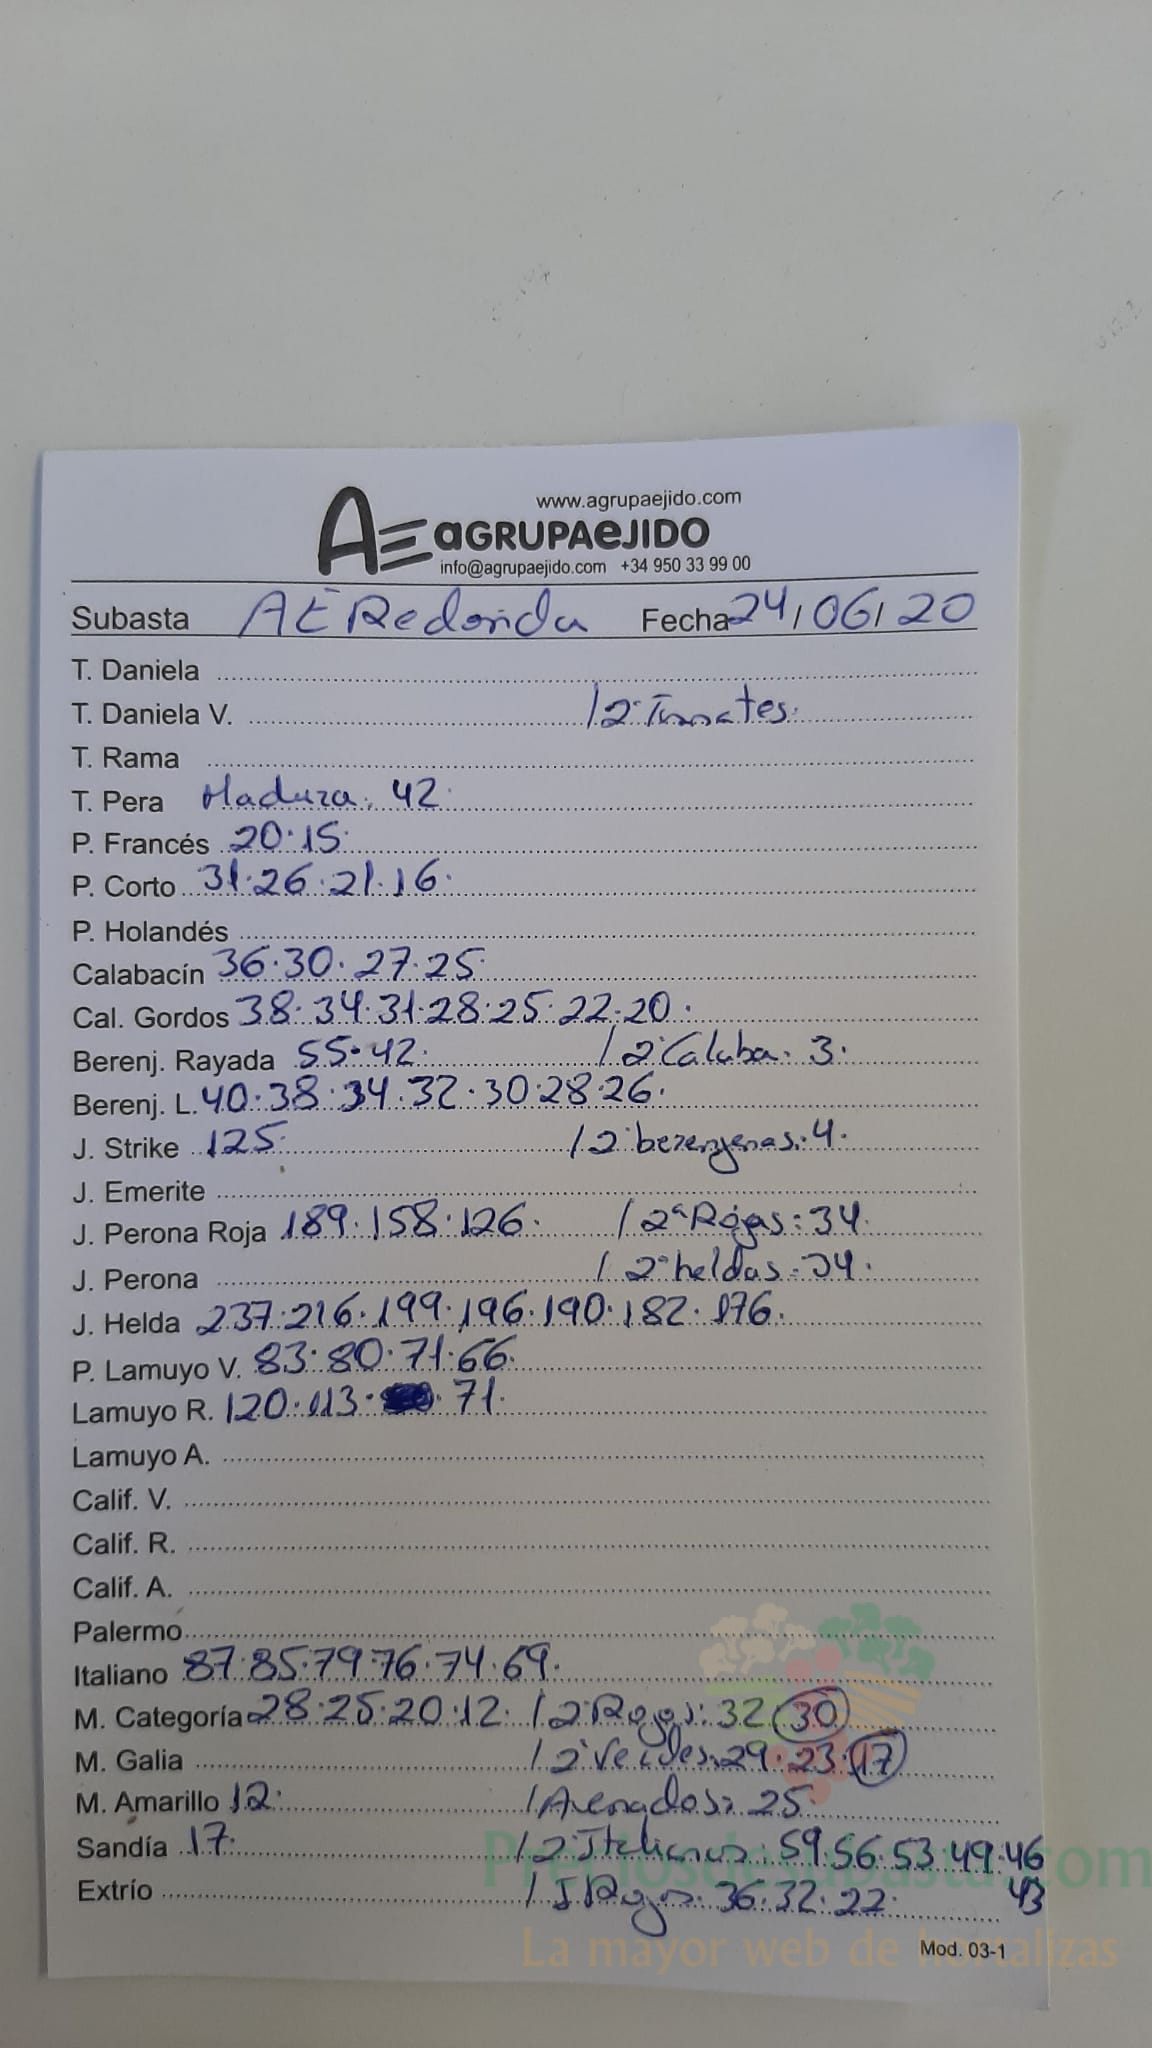 www.agrupaejido.com
AE aGRUPAeJIDO
info@agrupaejido.com +34 950 33 99 00
Subasta AE Redonda Fecha 24/06/20
T. Daniela
T. Daniela V. / 2ª Tomates.
T. Rama
T. Pera Madura. 42.
P. Francés 20.15.
P. Corto 31.26.21.16.
P. Holandés
Calabacín 36.30.27.25.
Cal. Gordos 38.34.31.28.25.22.20.
Berenj. Rayada 55.42. / 2ª Calaba. 3.
Berenj. L. 40.38.34.32.30.28.26.
J. Strike 125. / 2ª berenjenas. 4.
J. Emerite
J. Perona Roja 189.158.126. / 2ª Rojas: 34.
J. Perona / 2ª heldas. 34.
J. Helda 237.216.199.196.190.182.176.
P. Lamuyo V. 83.80.71.66.
Lamuyo R. 120.113. 71.
Lamuyo A.
Calif. V.
Calif. R.
Calif. A.
Palermo
Italiano 87.85.79.76.74.69.
M. Categoría 28.25.20.12. / 2ª Rojos: 32.30
M. Galia / 2ª Verdes: 29.23.17
M. Amarillo 12. / Asenados: 25
Sandía 17. / 2ª Italianos: 59.56.53.49.46
Extrío / I Rojos. 36.32.22. 43
Mod. 03-1
Preciosdesubasta.com
La mayor web de hortalizas